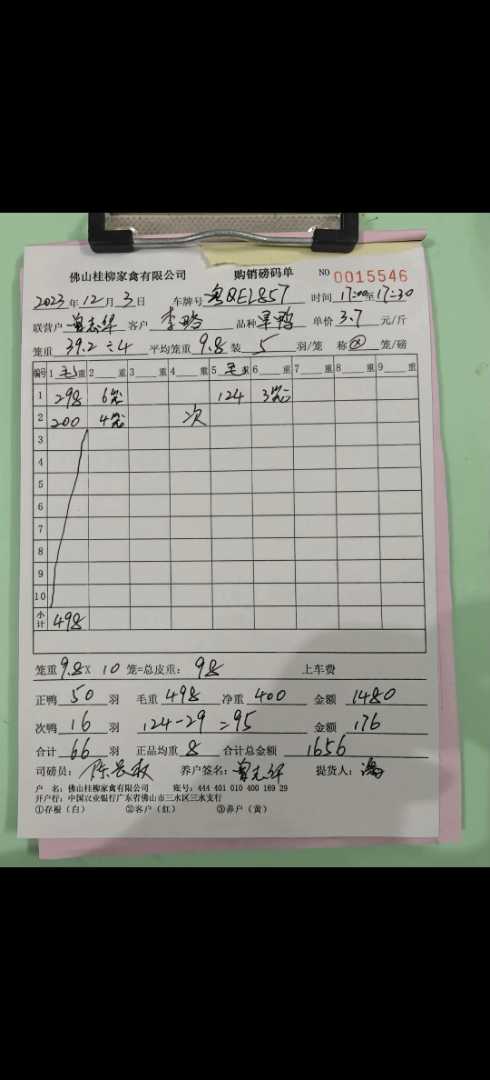 佛山桂柳家禽有限公司 购销磅码单 NO 0015546
2023年12月3日 车牌号 粤QEL857 时间 17:00至17:30
联营户 曾志华 客户 李鸣 品种 果鸭 单价 3.7 元/斤
笼重 39.2÷4 平均笼重 9.8 装 5 羽/笼 称 ② 笼/磅
编号 1 毛重 2 重 3 重 4 重 5 毛重 6 重 7 重 8 重 9 重
1 298 6笼 124 3笼
2 200 4笼 次
3
4
5
6
7
8
9
10
小计 498
笼重 9.8 X 10 笼=总皮重: 98 上车费
正鸭 50 羽 毛重 498 净重 400 金额 1480
次鸭 16 羽 124-29=95 金额 176
合计 66 羽 正品均重 8 合计总金额 1656
司磅员: 陈 养户签名: 曾志华 提货人:
户 名: 佛山桂柳家禽有限公司 账号: 444 401 010 400 169 29
开户行: 中国农业银行广东省佛山市三水区三水支行
①存根(白) ②客户(红) ③养户(黄)